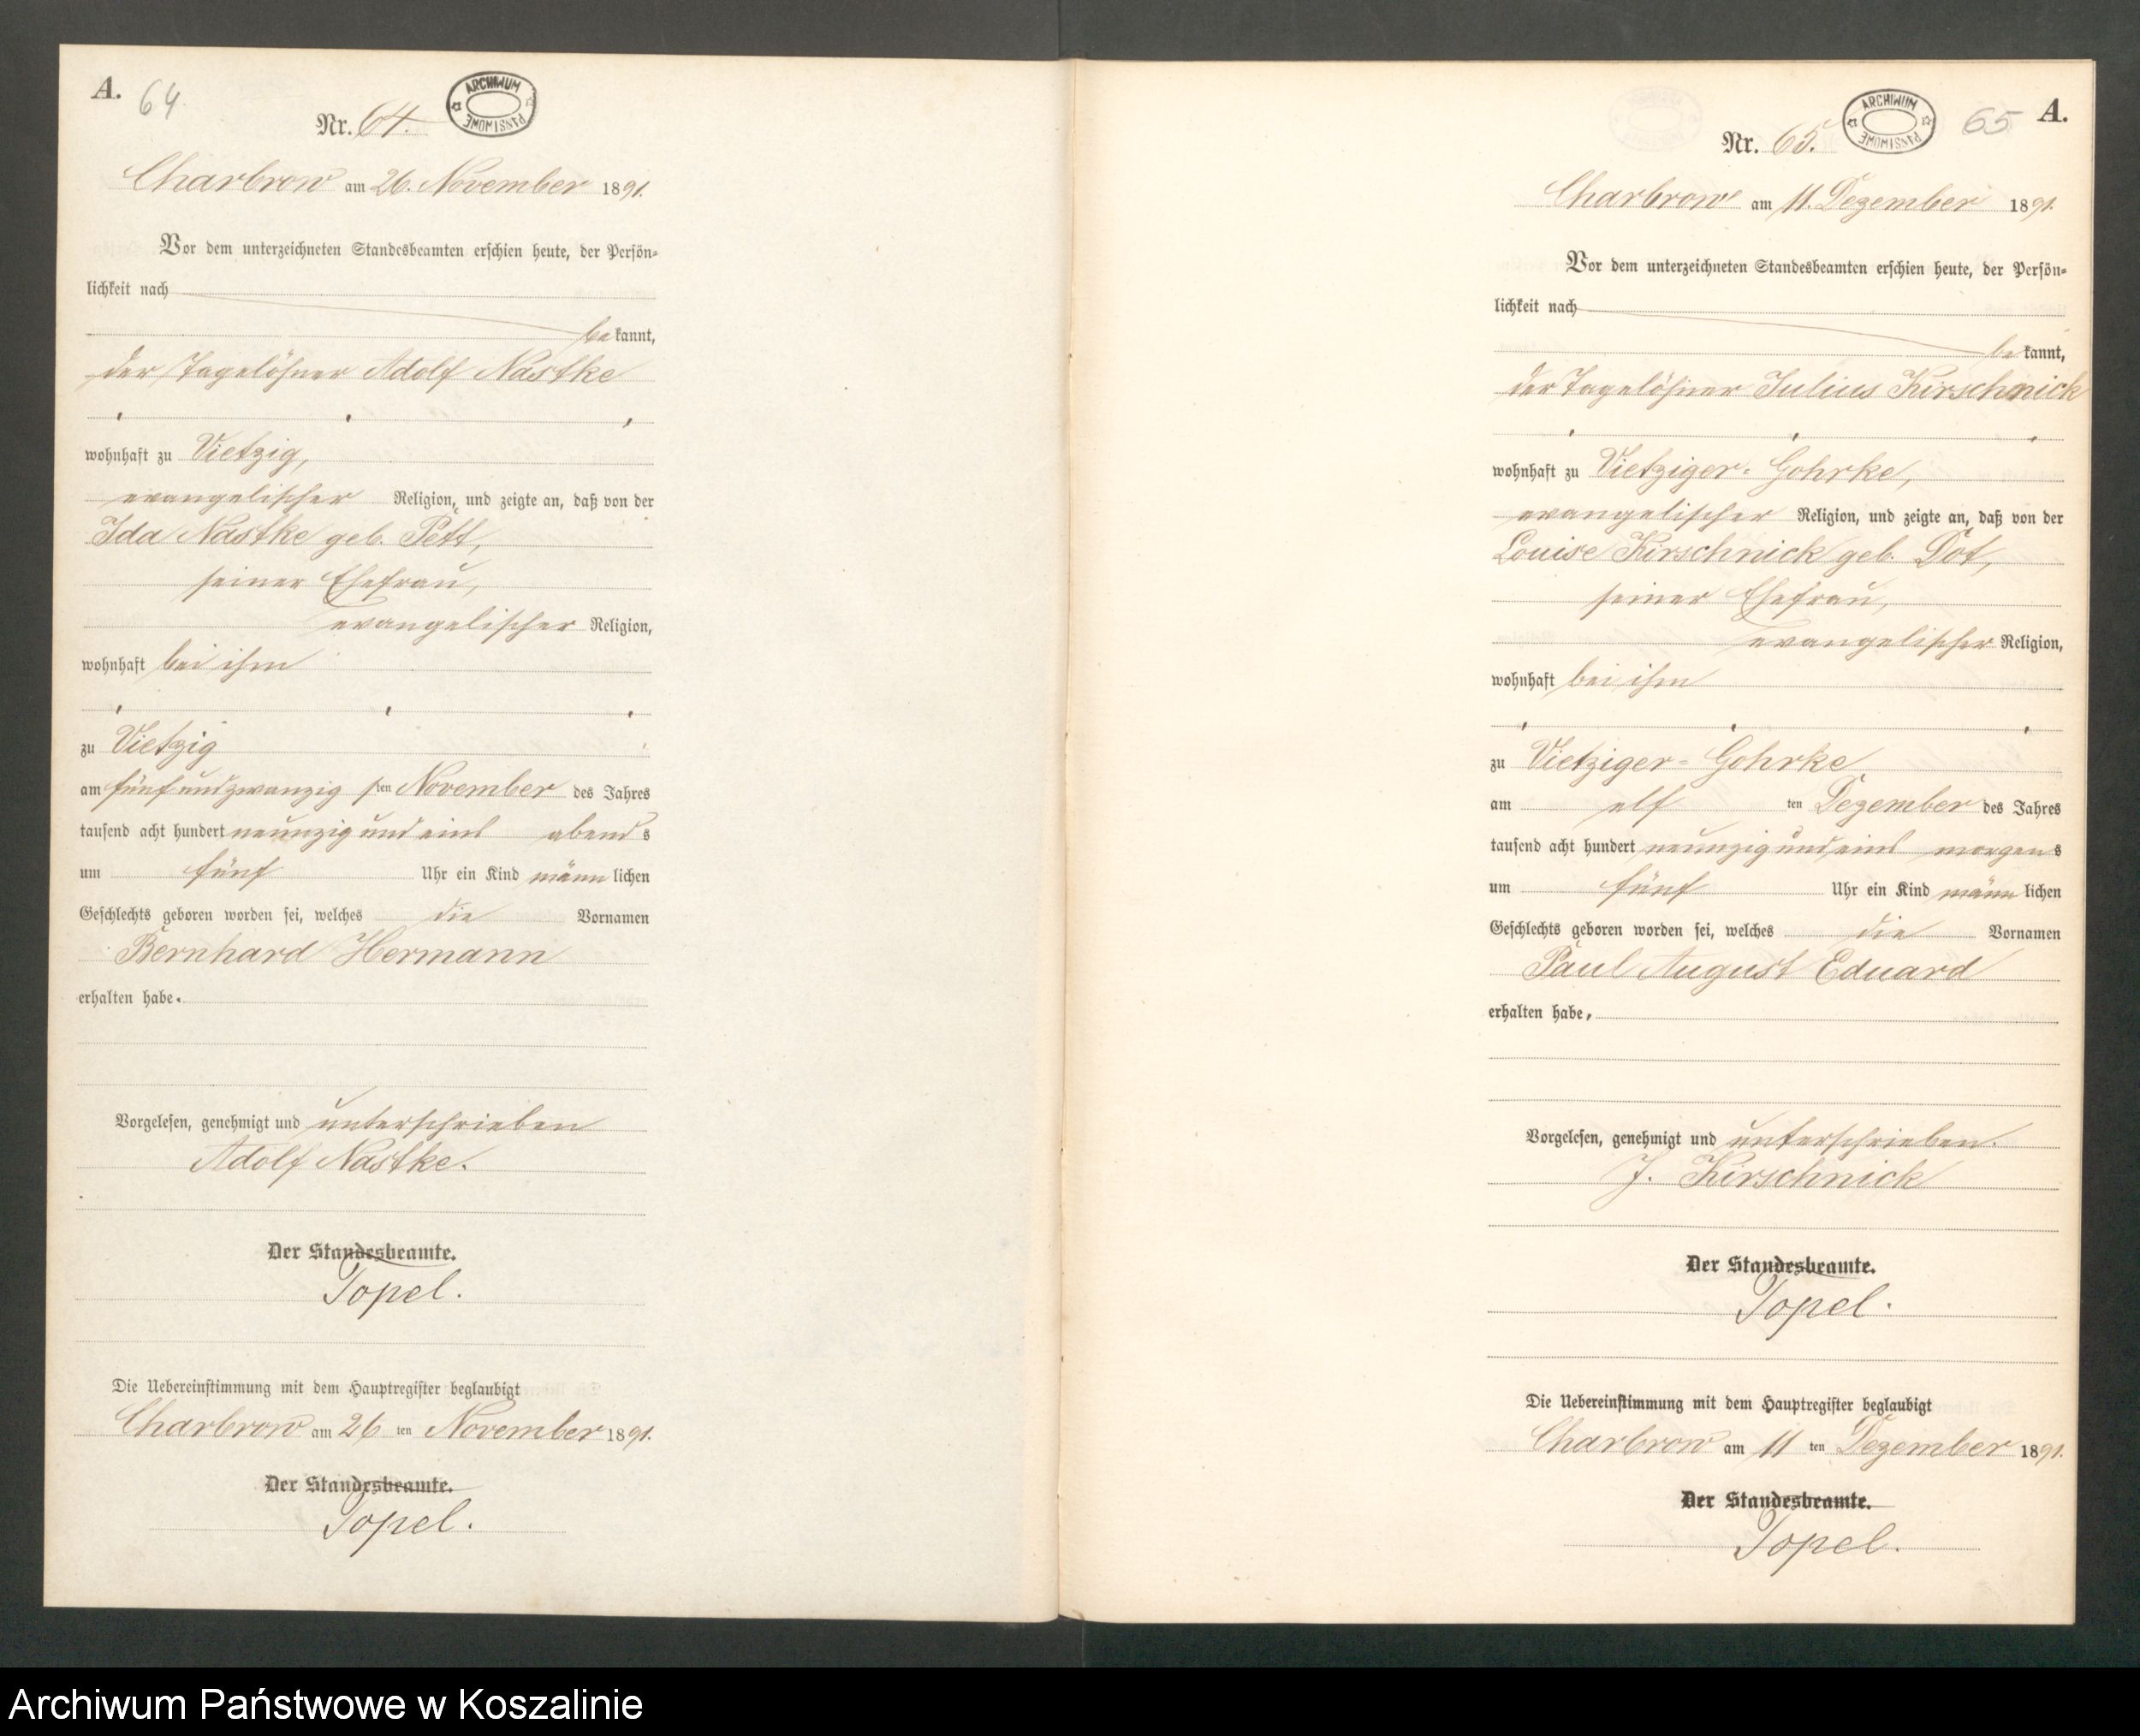 A. 64
ARCHIWUM PAŃSTWOWE
Nr. 64.
Charbrow am 26. November 1891.
Vor dem unterzeichneten Standesbeamten erschien heute, der Persön-
lichkeit nach
bekannt,
der Tagelöhner Adolf Nastke
wohnhaft zu Vietzig,
evangelischer Religion, und zeigte an, daß von der
Ida Nastke geb. Pett,
seiner Ehefrau,
evangelischer Religion,
wohnhaft bei ihm
zu Vietzig
am fünfundzwanzig sten November des Jahres
tausend acht hundert neunzig und eins abends
um fünf Uhr ein Kind männlichen
Geschlechts geboren worden sei, welches die Vornamen
Bernhard Hermann
erhalten habe.
Vorgelesen, genehmigt und unterschrieben
Adolf Nastke.
Der Standesbeamte.
Topel.
Die Uebereinstimmung mit dem Hauptregister beglaubigt
Charbrow am 26 ten November 1891.
Der Standesbeamte.
Topel.
65 A.
ARCHIWUM PAŃSTWOWE
Nr. 65.
Charbrow am 11. Dezember 1891.
Vor dem unterzeichneten Standesbeamten erschien heute, der Persön-
lichkeit nach
bekannt,
der Tagelöhner Julius Kirschnick
wohnhaft zu Vietziger-Gohrke,
evangelischer Religion, und zeigte an, daß von der
Louise Kirschnick geb. Dot,
seiner Ehefrau,
evangelischer Religion,
wohnhaft bei ihm
zu Vietziger-Gohrke
am elf ten Dezember des Jahres
tausend acht hundert neunzig und eins morgens
um fünf Uhr ein Kind männlichen
Geschlechts geboren worden sei, welches die Vornamen
Paul August Eduard
erhalten habe,
Vorgelesen, genehmigt und unterschrieben.
J. Kirschnick
Der Standesbeamte.
Topel.
Die Uebereinstimmung mit dem Hauptregister beglaubigt
Charbrow am 11 ten Dezember 1891.
Der Standesbeamte.
Topel.
Archiwum Państwowe w Koszalinie